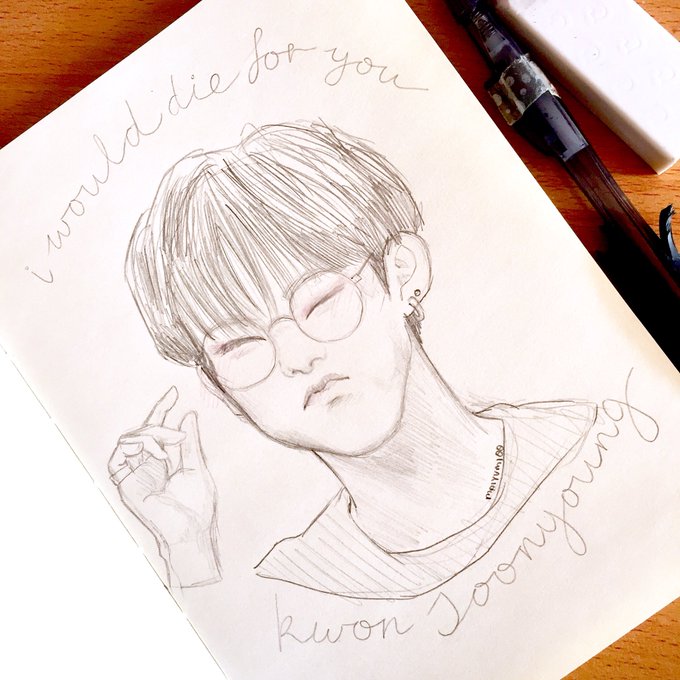 i would die for you
maiyumi00
kwon soonyoung